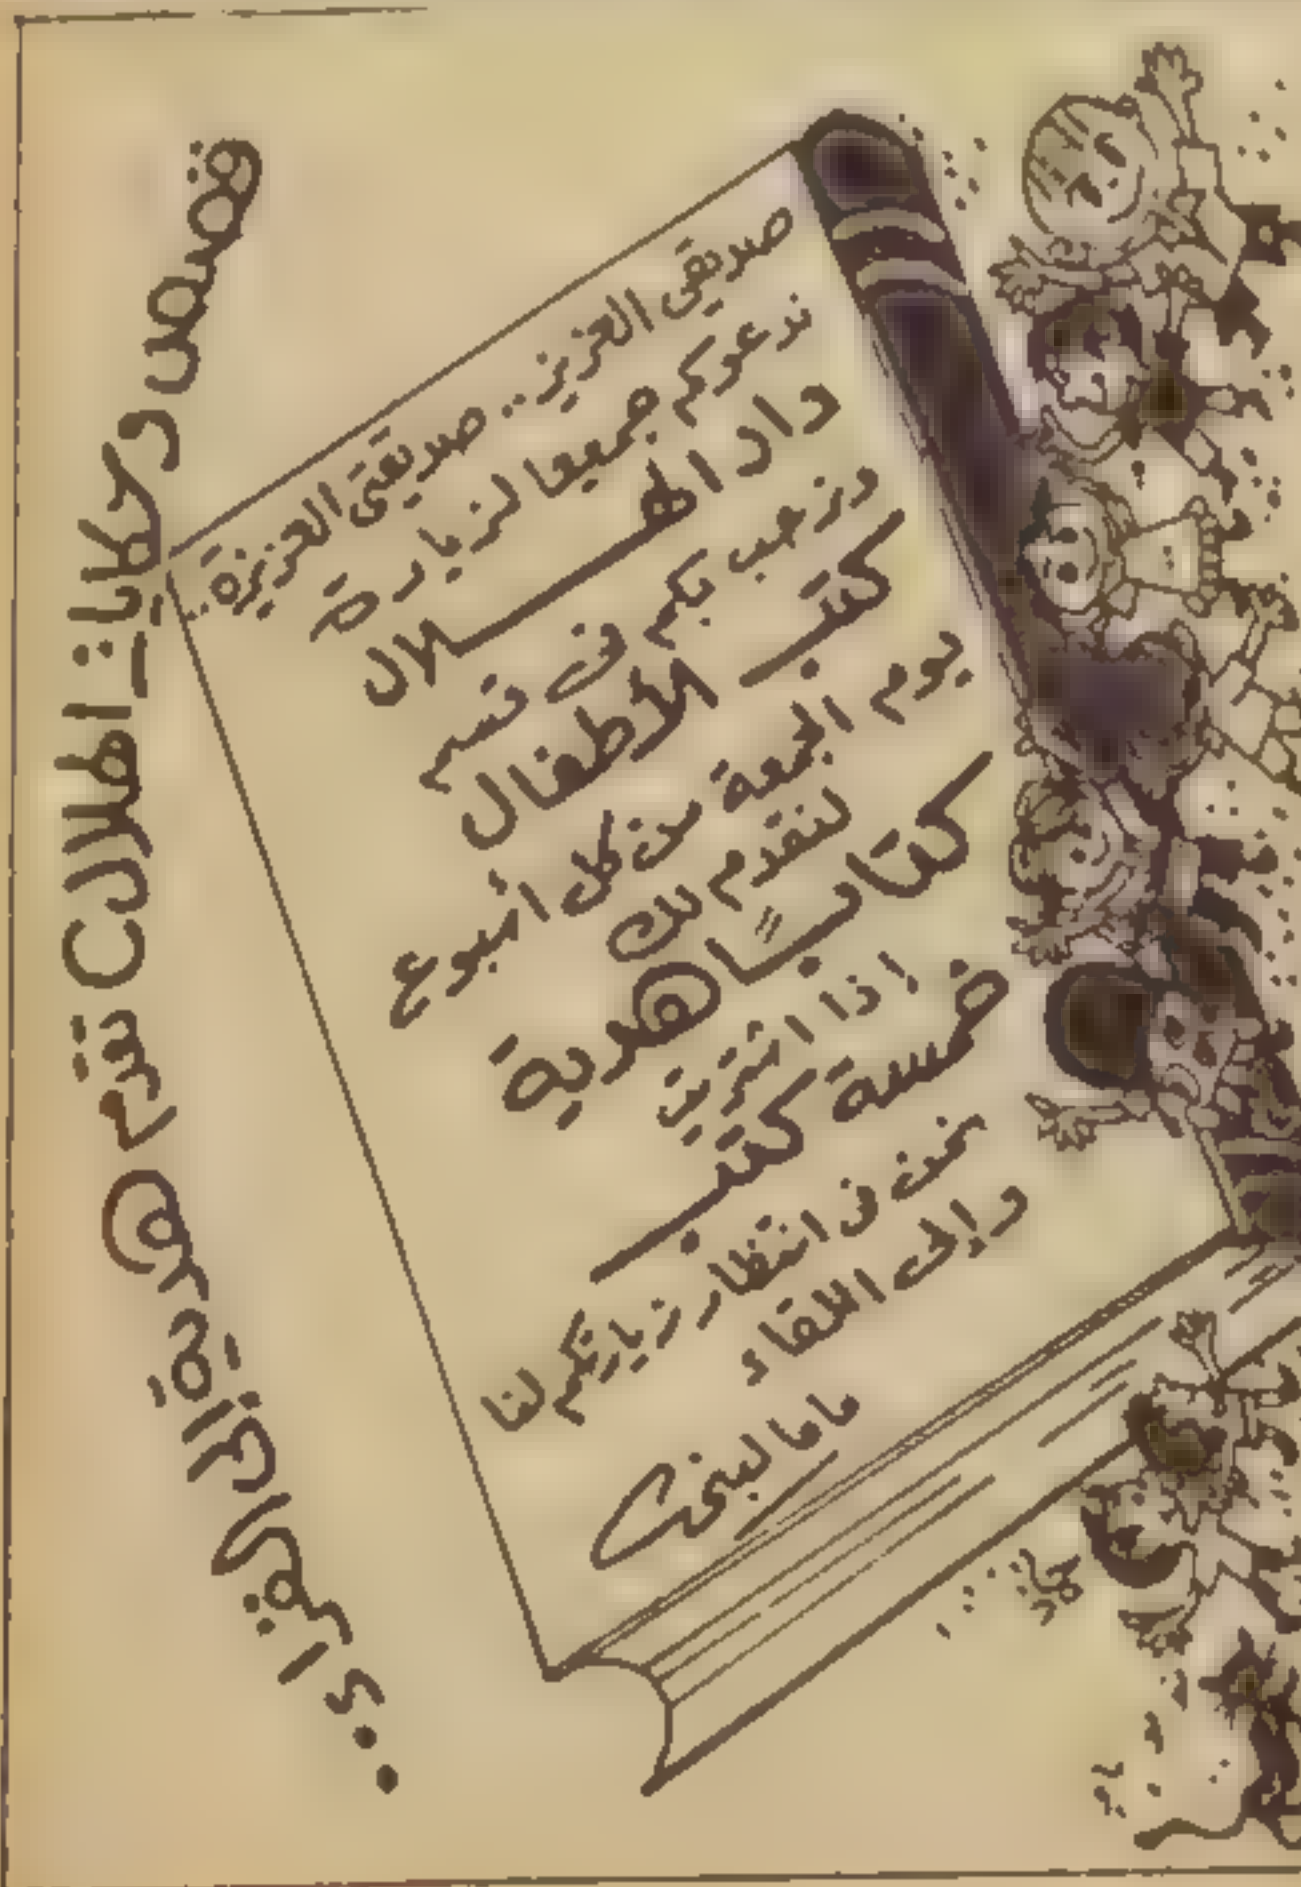 صديقى العزيز.. صديقتى العزيزة..
ندعوكم جميعا لزيارة
دار الهلال
ونرحب بكم فى قسم
كتب الأطفال
يوم الجمعة من كل أسبوع
لنقدم لك
كتابًا هدية
إذا اشتريت
خمسة كتب
نحن فى انتظار زيارتكم لنا
وإلى اللقاء
ماما لبنى
قصص وحكايات الهلال تقدم هواية القراءة..